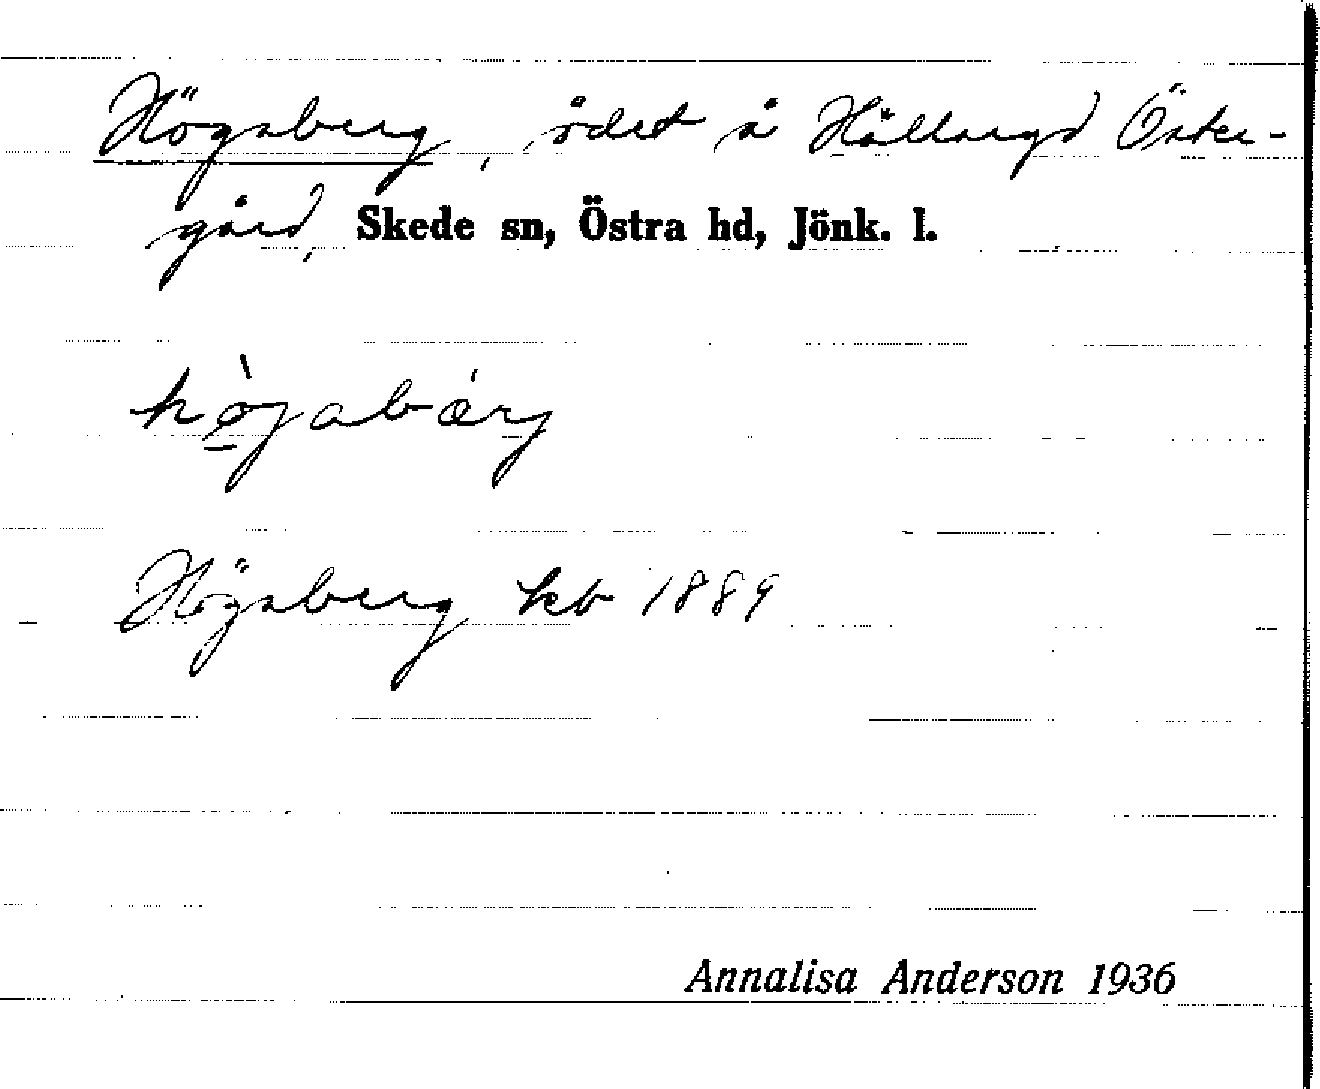 Högaberg, rivet å Hållaryd Öster-
gård, Skede sn, Östra hd, Jönk. l.
hö̀jabǽrj
Högaberg kb 1889
Annalisa Anderson 1936